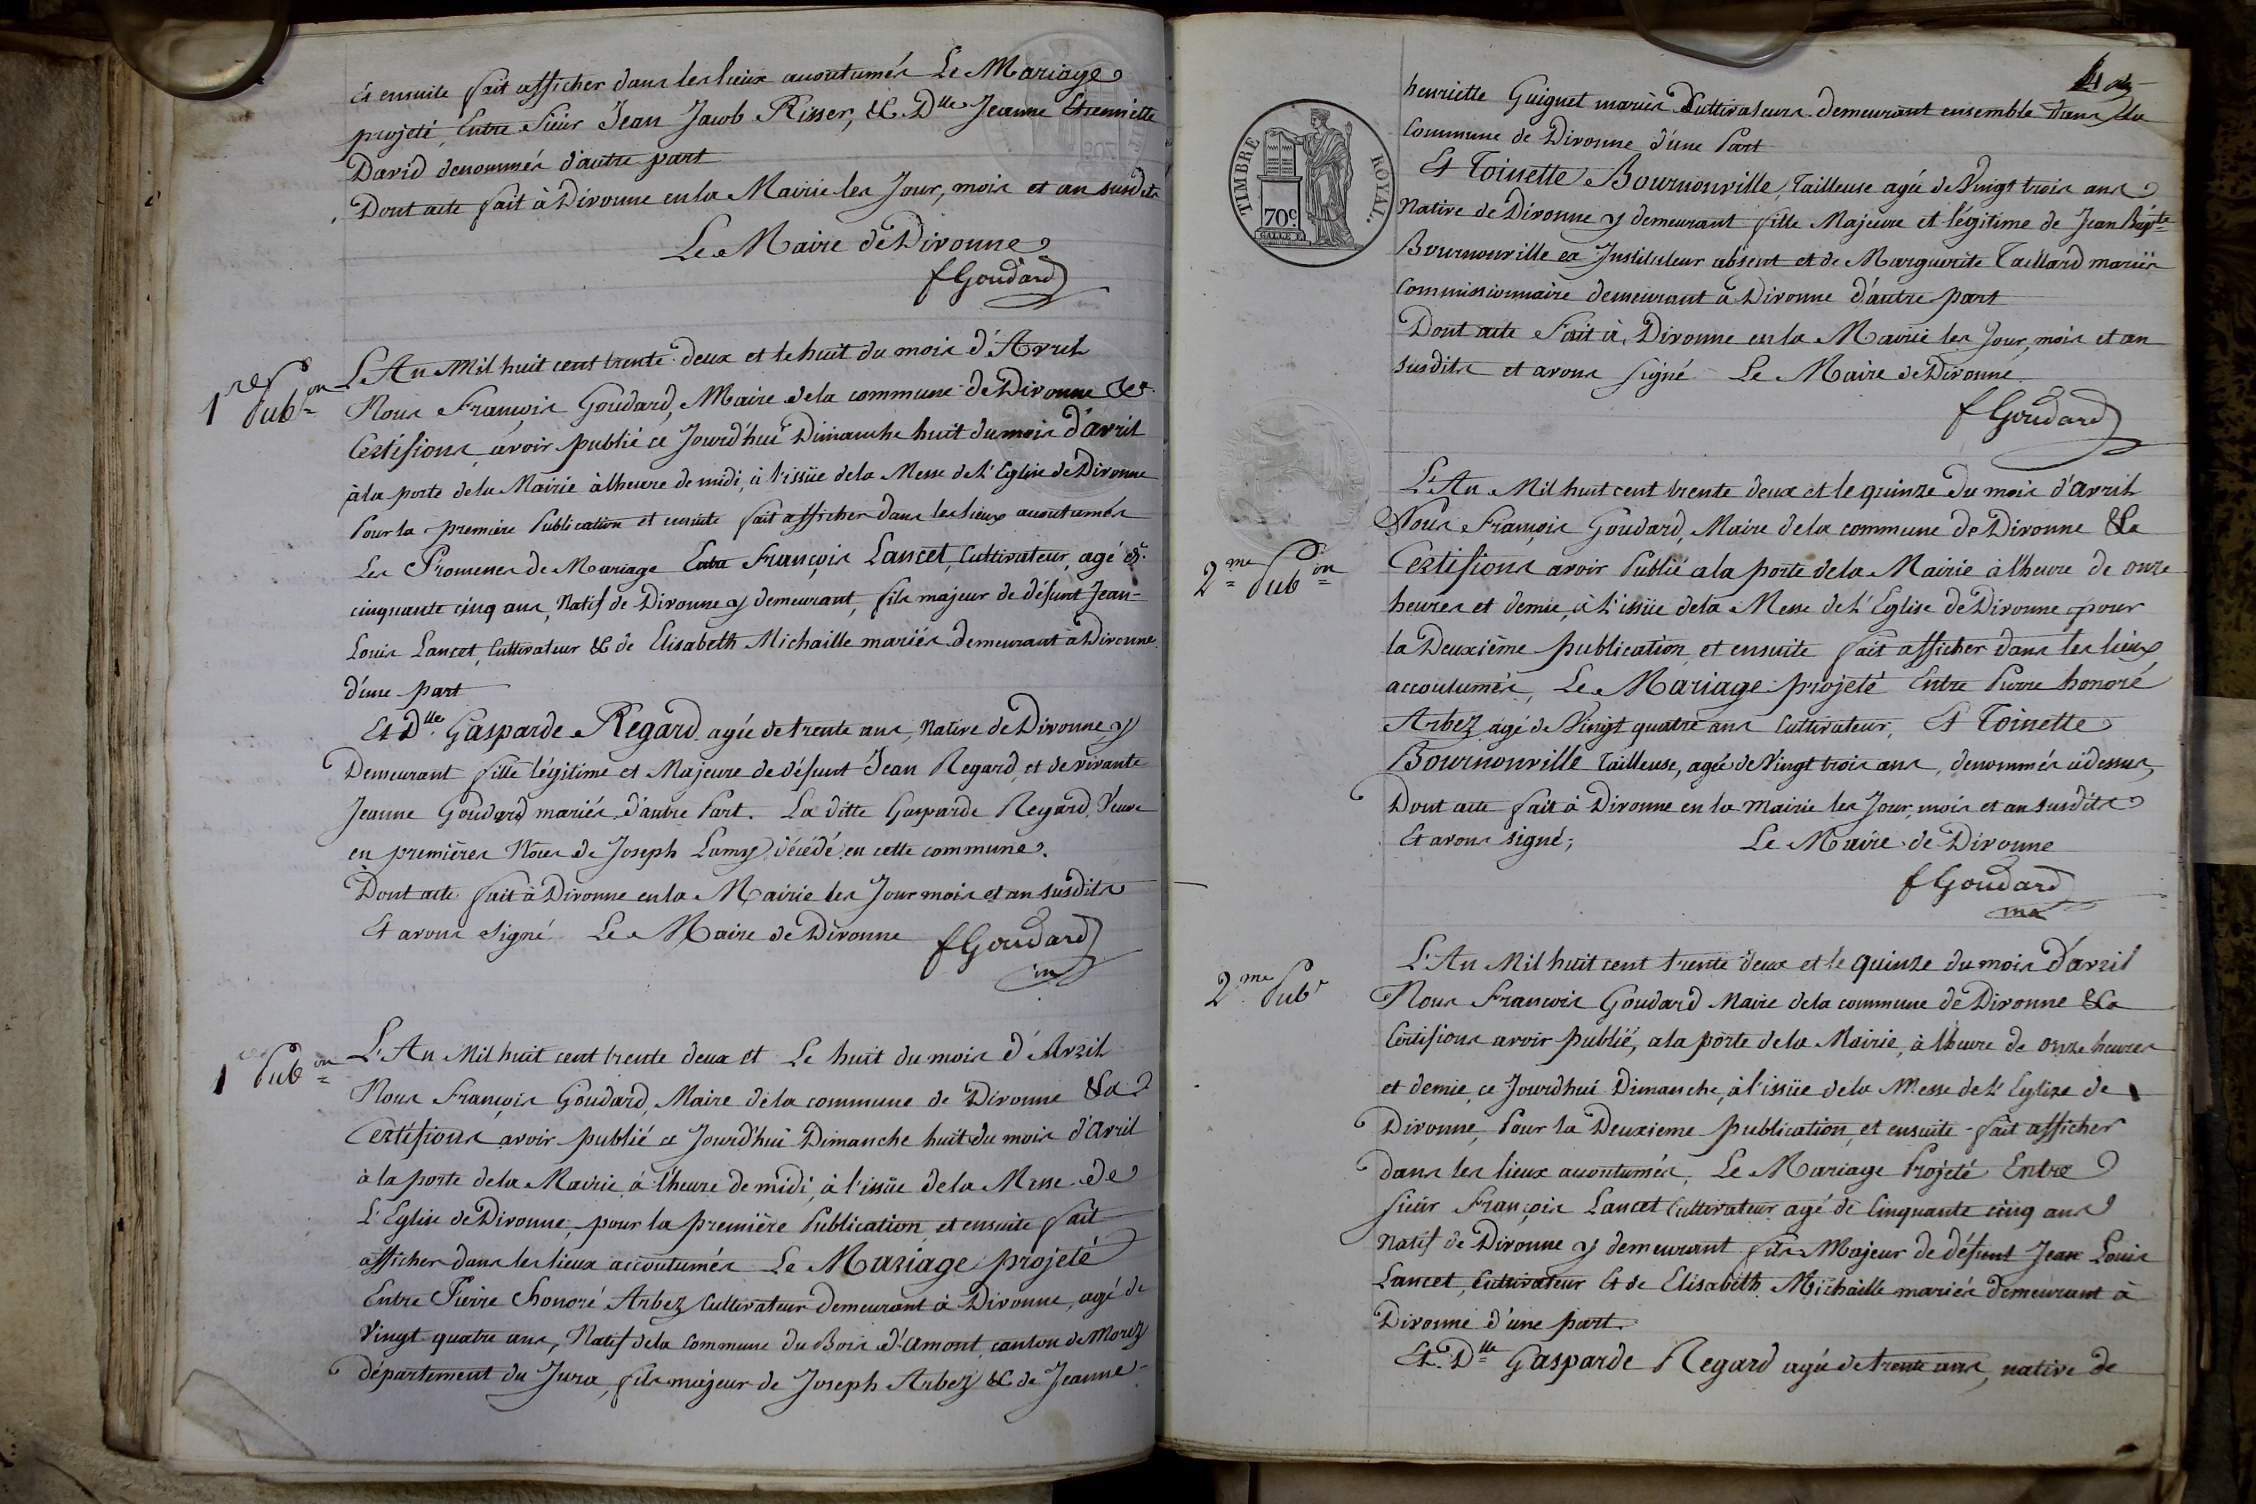 et ensuite fait afficher dans les lieux accoutumés Le Mariage
projeté, Entre Sieur Jean Jacob Risser, & Dlle Jeanne Etiennette
David denommés d'autre part
Dont acte fait à Divonne en la Mairie les Jour, mois et an susdits
Le Maire de Divonne
f Goudard
1re Pubon
L'An Mil huit cent trente deux et le huit du mois d'Avril
Nous François Goudard, Maire de la commune de Divonne &c.
Certifions avoir publié ce Jourd'hui Dimanche huit du mois d'avril
à la porte de la Mairie à l'heure de midi, à l'issüe de la Messe de L'Eglise de Divonne
Pour la première Publication et ensuite fait afficher dans les lieux accoutumés
Les Promesses de Mariage Entre François Lancet, Cultivateur, agé de
cinquante cinq ans, Natif de Divonne y demeurant, fils majeur de défunt Jean-
Louis Lancet, Cultivateur & de Elisabeth Michaille mariés demeurant à Divonne
d'une part
Et Dlle Gasparde Regard agée de trente ans, Native de Divonne y
Demeurant fille légitime et Majeure de défunt Jean Regard et de vivante
Jeanne Goudard mariés d'autre Part. La ditte Gasparde Regard Veuve
en premières Noces de Joseph Lamy décédé en cette commune.
Dont acte fait à Divonne en la Mairie les Jour mois et an susdits
Et avons signé Le Maire de Divonne f Goudard
1 Pubon
L'An Mil huit cent trente deux et Le huit du mois d'Avril
Nous François Goudard, Maire de la commune de Divonne &a
Certifions avoir publié ce Jourd'hui Dimanche huit du mois d'avril
à la porte de la Mairie à l'heure de midi, à l'issüe de la Messe de
L'Eglise de Divonne, pour la première Publication et ensuite fait
afficher dans les lieux accoutumés Le Mariage projeté
Entre Pierre honoré Arbez Cultivateur demeurant à Divonne, agé de
Vingt quatre ans, Natif de la Commune du Bois d'amont canton de Morez
département du Jura, fils majeur de Joseph Arbez & de Jeanne
henriette Guignet mariés Cultivateurs demeurant ensemble dans la
Commune de Divonne d'une Part
Et Toinette Bournonville, Tailleuse agée de Vingt trois ans
Native de Divonne y demeurant fille Majeure et légitime de Jean Bapte
Bournonville ex Instituteur absent et de Marguerite Taillard mariés
Commissionnaire demeurant à Divonne d'autre part
Dont acte Fait à Divonne en la Mairie les Jour, mois et an
susdits et avons signé Le Maire de Divonne
f Goudard
TIMBRE ROYAL.
70c
2me Pubon
L'An Mil huit cent trente deux et le quinze du mois d'avril
Nous François Goudard, Maire de la commune de Divonne &a
Certifions avoir Publié a la porte de la Mairie à l'heure de onze
heures et demie, à L'issüe de la Messe de L'Eglise de Divonne pour
la Deuxième publication et ensuite fait afficher dans les lieux
accoutumés, Le Mariage projeté Entre Pierre honoré
Arbez agé de Vingt quatre ans Cultivateur, Et Toinette
Bournonville Tailleuse, agée de Vingt trois ans, denommés cidessus,
Dont acte fait à Divonne en la mairie les Jour, mois et an susdits
Et avons signé; Le Maire de Divonne
f Goudard
2me Pub
L'An Mil huit cent trente deux et le quinze du mois d'avril
Nous François Goudard Maire de la commune de Divonne &a
Certifions avoir publié, a la porte de la Mairie, à l'heure de onze heures
et demie, ce Jourd'hui Dimanche, à l'issüe de la Messe de L'Eglize de
Divonne, Pour la Deuxieme publication, et ensuite fait afficher
dans les lieux accoutumés, Le Mariage Projeté Entre
Sieur François Lancet Cultivateur agé de Cinquante cinq ans
Natif de Divonne y demeurant fils Majeur de défunt Jean Louis
Lancet, Cultivateur Et de Elisabeth Michaille mariés demeurant à
Divonne d'une part.
Et Dlle Gasparde Regard agée de trente ans, native de